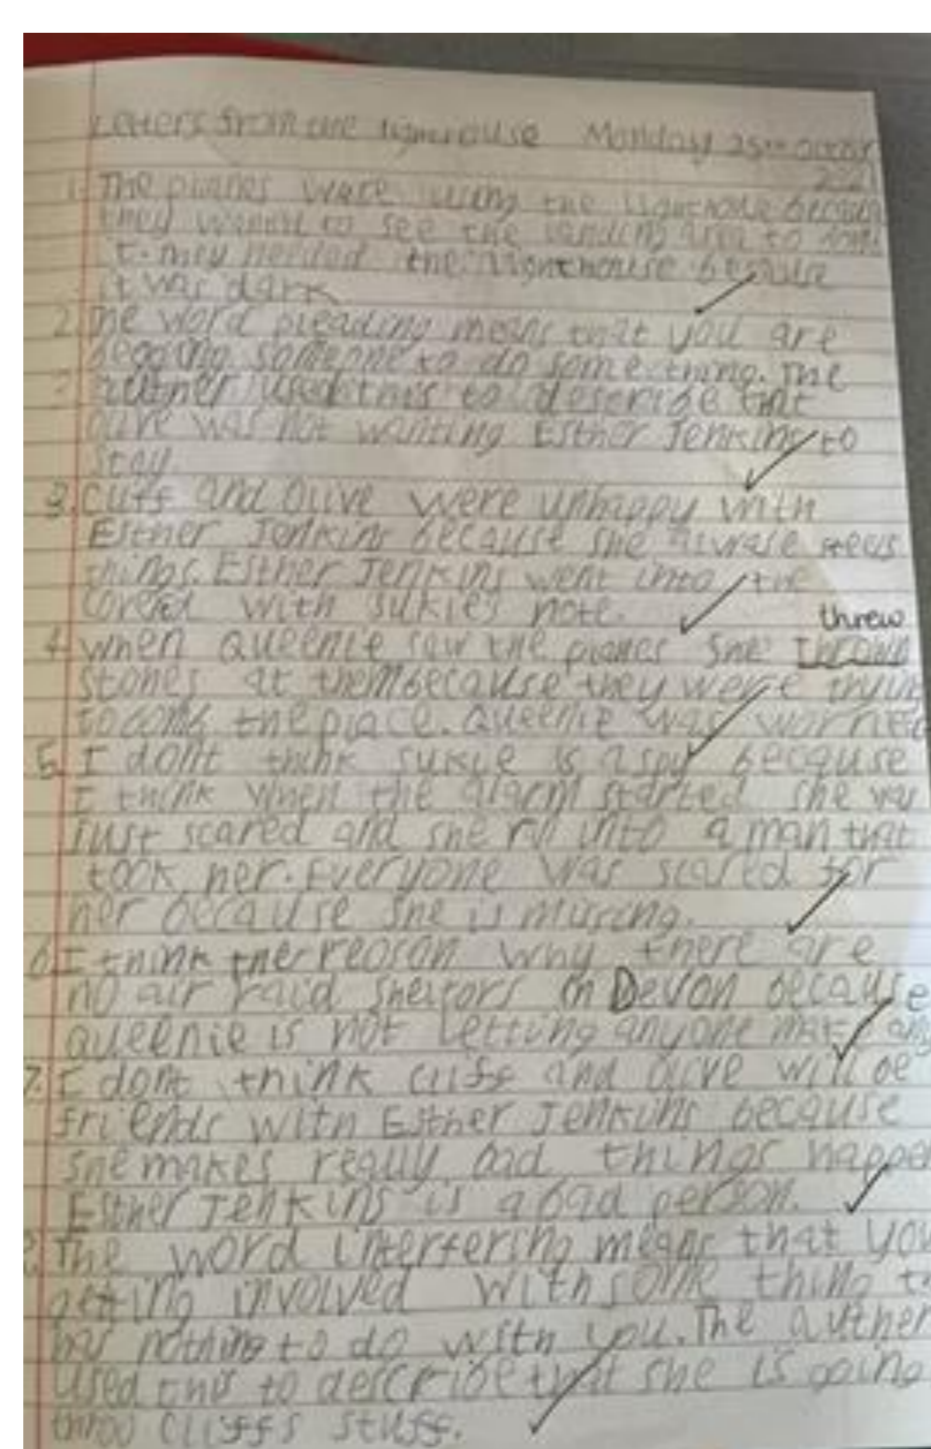 Letters from the lighthouse Monday 25th October
2021
1. The planes were using the Lighthouse because
they wanted to see the landing area to bomb
it. They needed the lighthouse because
it was dark
2. The word pleading means that you are
begging someone to do something. The
auther used this to describe that
Olive was not wanting Esther Jenkins to
stay.
3. Cliff and Olive were unhappy with
Esther Jenkins because she
things. Esther Jenkins went into the
with sukies note.
threw
4. When Queenie saw the planes she
stones at them because they were
to bomb the place. Queenie was worried
5. I dont think sukie is a spy because
I think when the alarm started she was
Just scared and she into a man that
took her. Everyone was scared for
her because she is missing.
6. I think the reason why there are
no air raid sheltors in Devon because
Queenie is not Letting anyone
7. I dont think cliff and olive will be
friends with Esther Jenkins because
she makes really bad things happen
Esther Jenkins is a bad person.
8. The word interfering means that you
getting involved with some thing
has nothing to do with you. The auther
used this to describe that she is going
throo cliffs stuff.